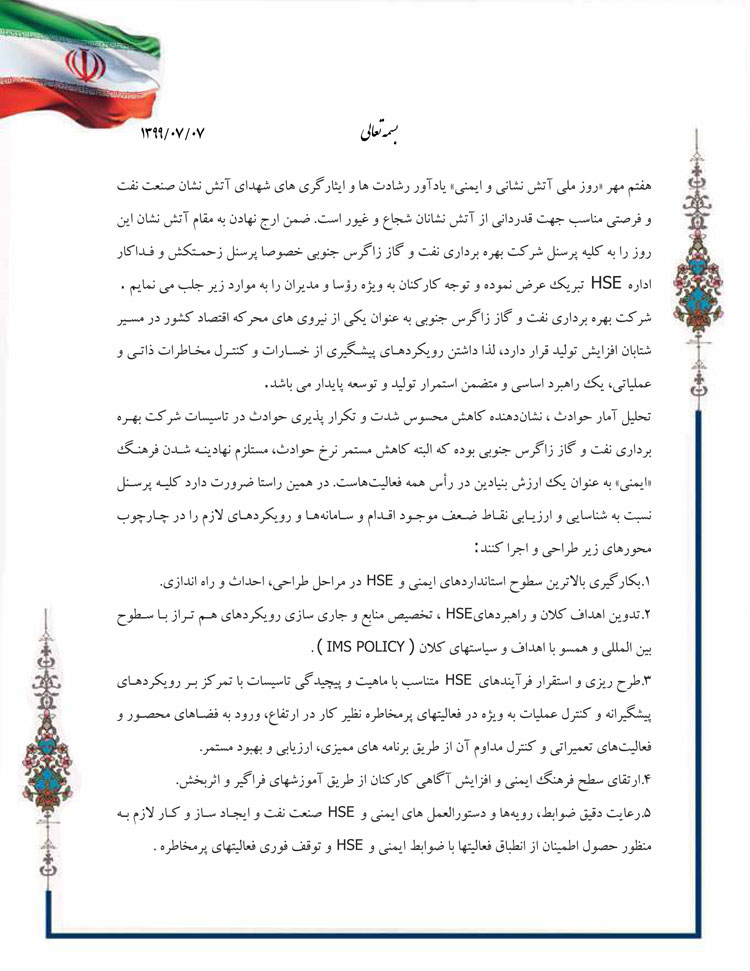 بسمه تعالی
۱۳۹۹/۰۷/۰۷
هفتم مهر «روز ملی آتش نشانی و ایمنی» یادآور رشادت ها و ایثارگری های شهدای آتش نشان صنعت نفت
و فرصتی مناسب جهت قدردانی از آتش نشانان شجاع و غیور است. ضمن ارج نهادن به مقام آتش نشان این
روز را به کلیه پرسنل شرکت بهره برداری نفت و گاز زاگرس جنوبی خصوصا پرسنل زحمتکش و فداکار
اداره HSE تبریک عرض نموده و توجه کارکنان به ویژه رؤسا و مدیران را به موارد زیر جلب می نمایم .
شرکت بهره برداری نفت و گاز زاگرس جنوبی به عنوان یکی از نیروی های محرکه اقتصاد کشور در مسیر
شتابان افزایش تولید قرار دارد، لذا داشتن رویکردهای پیشگیری از خسارات و کنترل مخاطرات ذاتی و
عملیاتی، یک راهبرد اساسی و متضمن استمرار تولید و توسعه پایدار می باشد.
تحلیل آمار حوادث ، نشان‌دهنده کاهش محسوس شدت و تکرار پذیری حوادث در تاسیسات شرکت بهره
برداری نفت و گاز زاگرس جنوبی بوده که البته کاهش مستمر نرخ حوادث، مستلزم نهادینه شدن فرهنگ
«ایمنی» به عنوان یک ارزش بنیادین در رأس همه فعالیت‌هاست. در همین راستا ضرورت دارد کلیه پرسنل
نسبت به شناسایی و ارزیابی نقاط ضعف موجود اقدام و سامانه‌ها و رویکردهای لازم را در چارچوب
محورهای زیر طراحی و اجرا کنند:
۱.بکارگیری بالاترین سطوح استانداردهای ایمنی و HSE در مراحل طراحی، احداث و راه اندازی.
۲.تدوین اهداف کلان و راهبردهایHSE ، تخصیص منابع و جاری سازی رویکردهای هم تراز با سطوح
بین المللی و همسو با اهداف و سیاستهای کلان ( IMS POLICY ).
۳.طرح ریزی و استقرار فرآیندهای HSE متناسب با ماهیت و پیچیدگی تاسیسات با تمرکز بر رویکردهای
پیشگیرانه و کنترل عملیات به ویژه در فعالیتهای پرمخاطره نظیر کار در ارتفاع، ورود به فضاهای محصور و
فعالیت‌های تعمیراتی و کنترل مداوم آن از طریق برنامه های ممیزی، ارزیابی و بهبود مستمر.
۴.ارتقای سطح فرهنگ ایمنی و افزایش آگاهی کارکنان از طریق آموزشهای فراگیر و اثربخش.
۵.رعایت دقیق ضوابط، رویه‌ها و دستورالعمل های ایمنی و HSE صنعت نفت و ایجاد ساز و کار لازم به
منظور حصول اطمینان از انطباق فعالیتها با ضوابط ایمنی و HSE و توقف فوری فعالیتهای پرمخاطره .